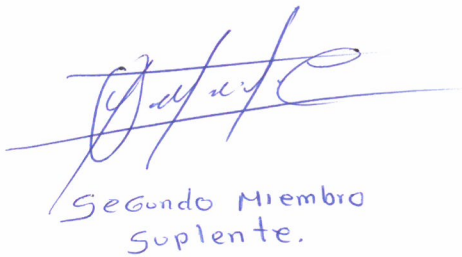 Segundo Miembro
Suplente.